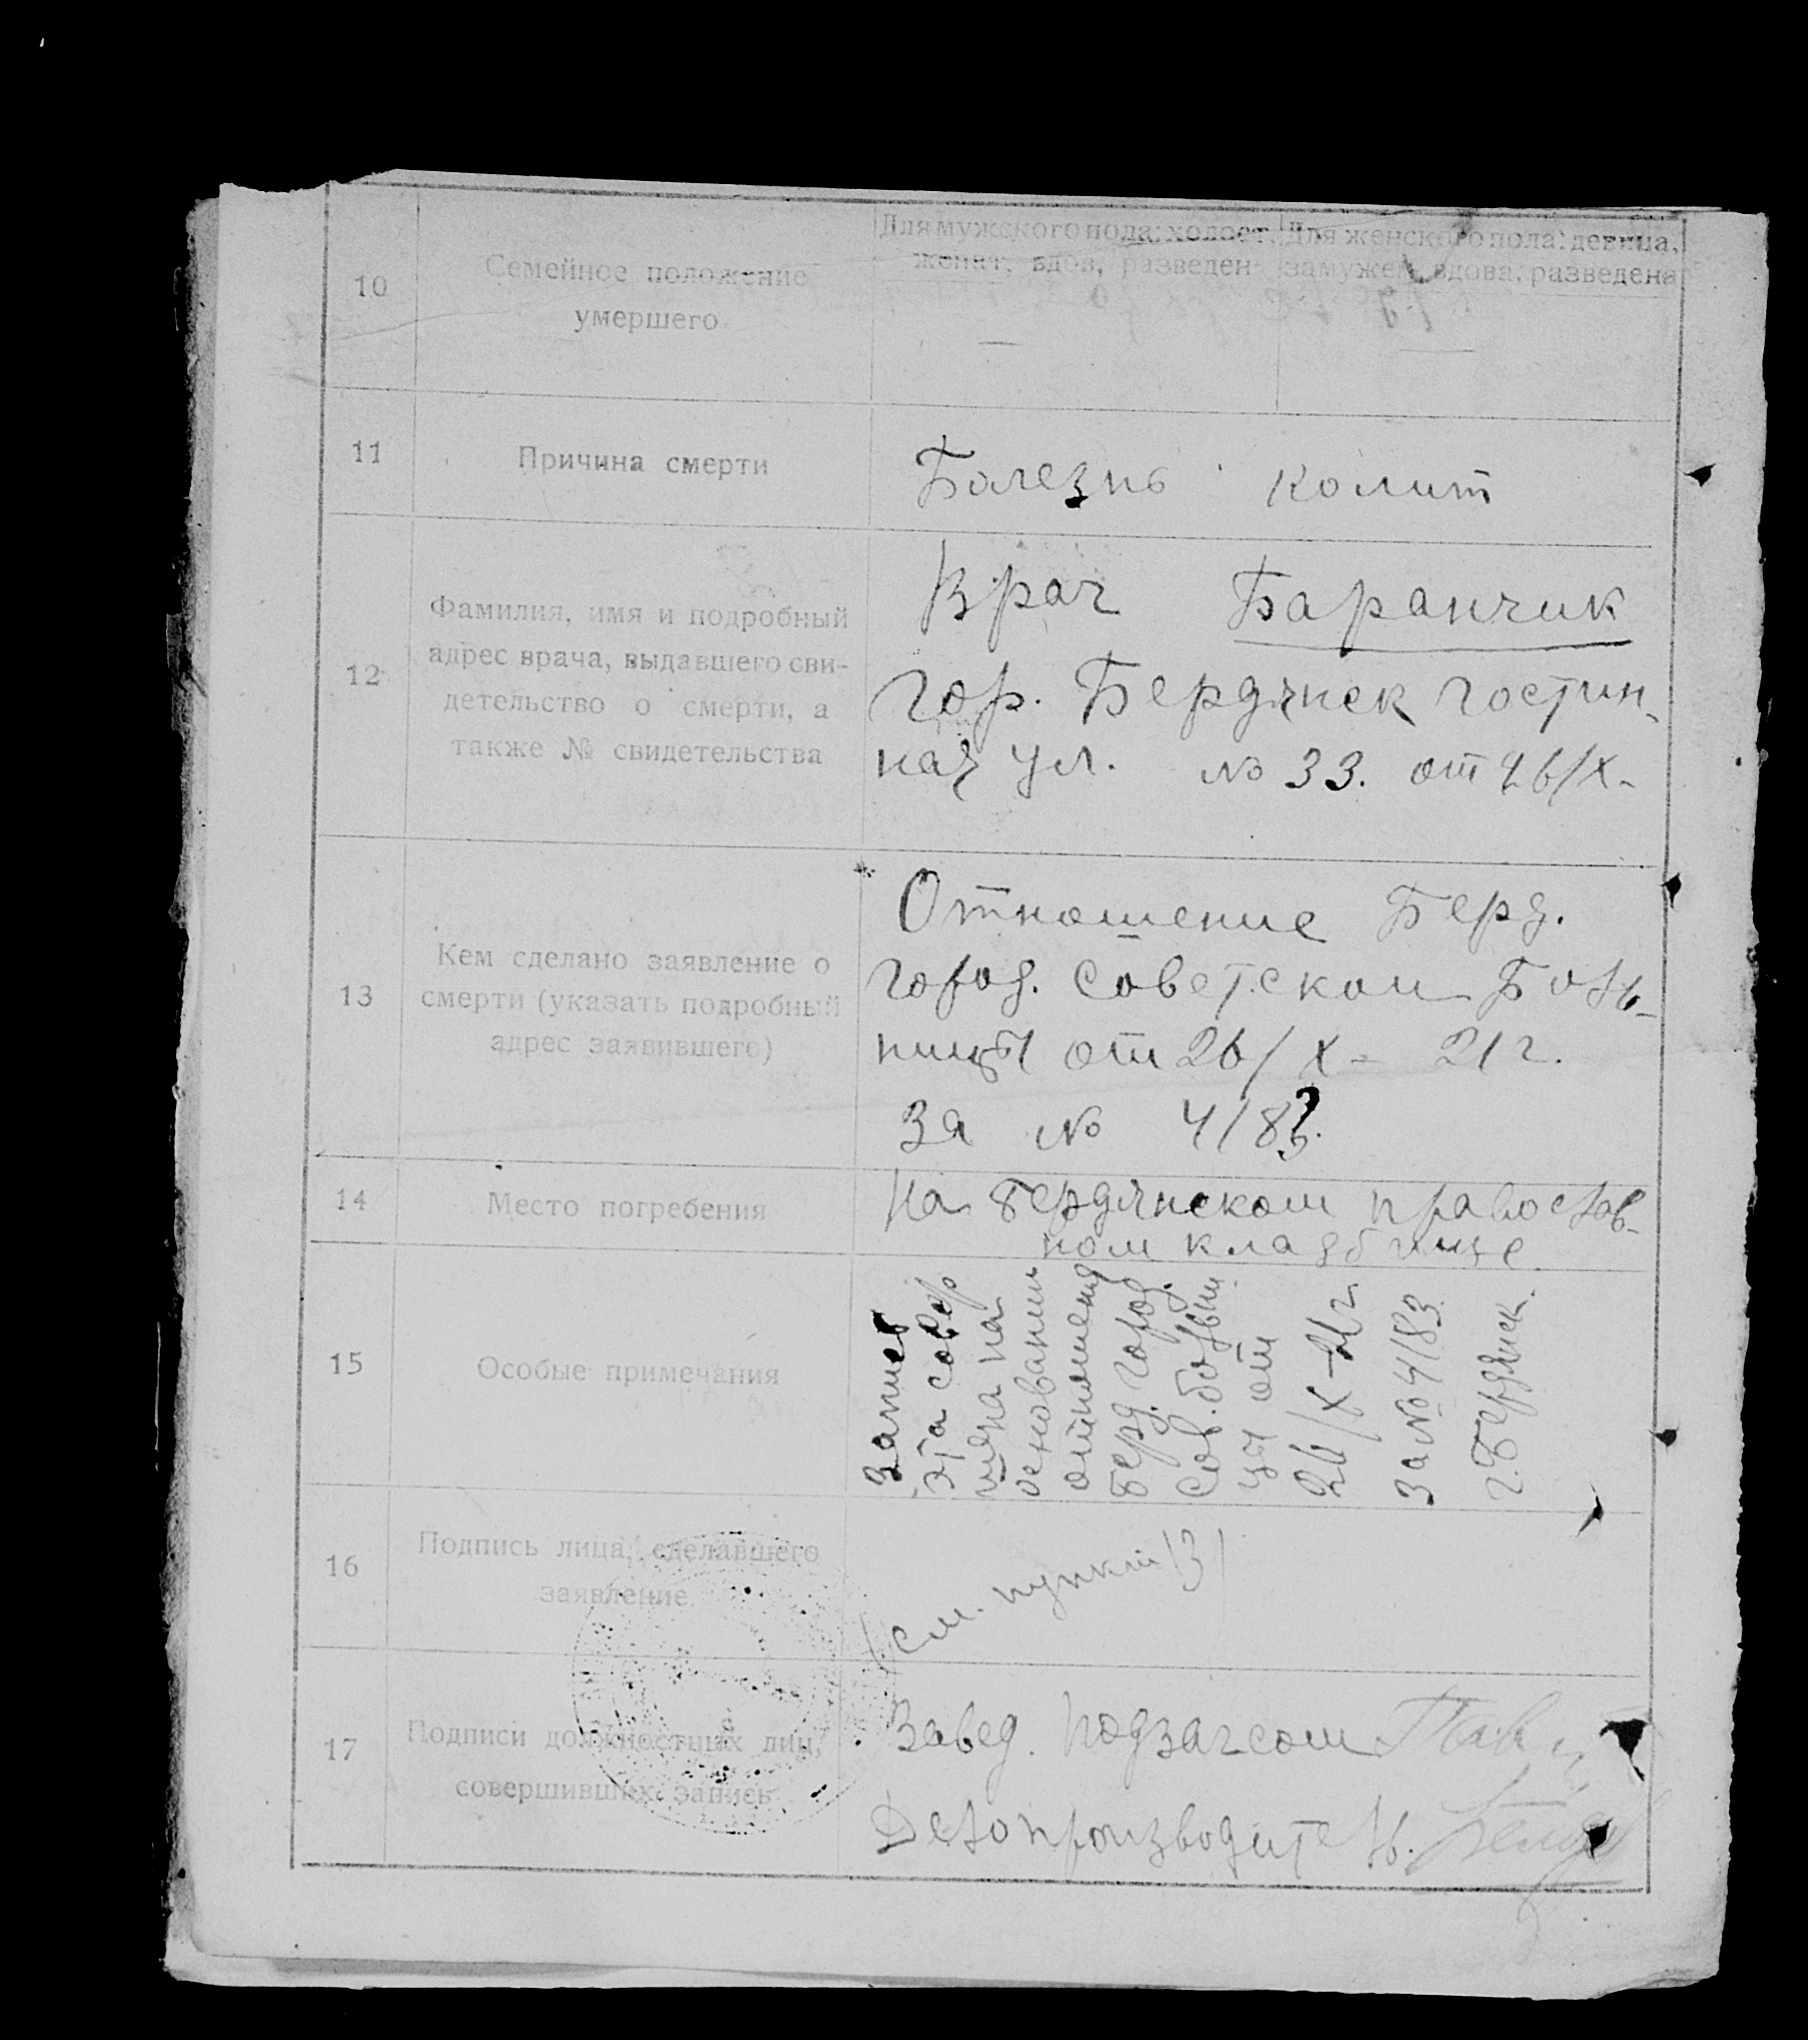 10
Семейное положение
умершего
Для мужского пола: холост,
женат, вдов, разведен
Для женского пола: девица,
замужем, вдова, разведена
—
—
11
Причина смерти
Болезнь колит
12
Фамилия, имя и подробный
адрес врача, выдавшего сви-
детельство о смерти, а
также № свидетельства
Врач Баранчик
гор. Бердянск Гостин-
ная ул. № 33. от 26/X-
13
Кем сделано заявление о
смерти (указать подробный
адрес заявившего)
Отношение Берд.
город. советской Боль-
ницы от 26/X- 21 г.
за № 4183.
14
Место погребения
На Бердянском православ-
ном кладбище
15
Особые примечания
Запись
эта совер
шена на
основании
отношения
Берд. город.
сов. больни
цы от
26/X-21 г.
за № 4183
г. Бердянск.
16
Подпись лица, сделавшего
заявление
(см. пункт 13)
17
Подписи должностных лиц,
совершивших запись
Завед. подзагсом
Делопроизводитель.